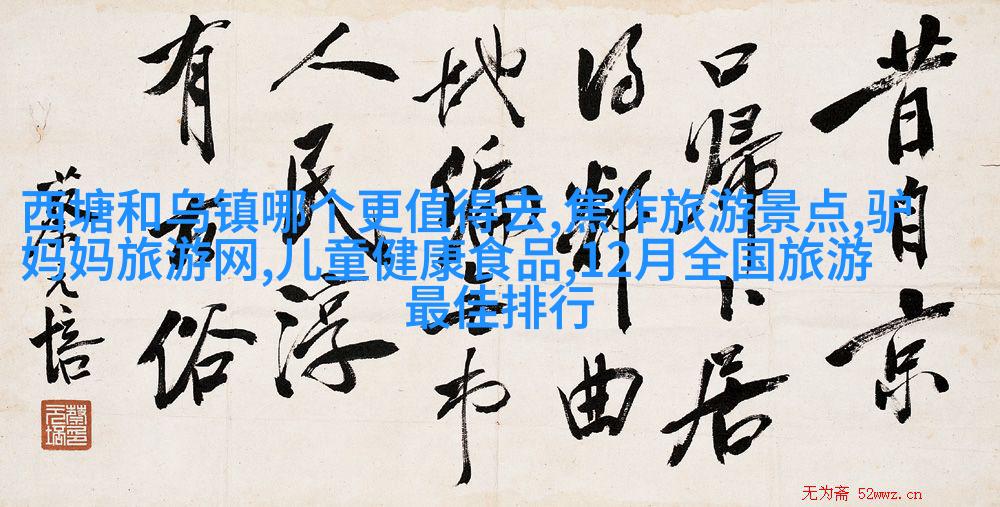 西塘和乌镇哪个更值得去,焦作旅游景点,驴
妈妈旅游网,儿童健康食品,12月全国旅游
最佳排行
昔自京
口歸卜居
得鄰曲
地偏無市
人民淳
有古俗
蔡元培
无为斋 52wwz.cn